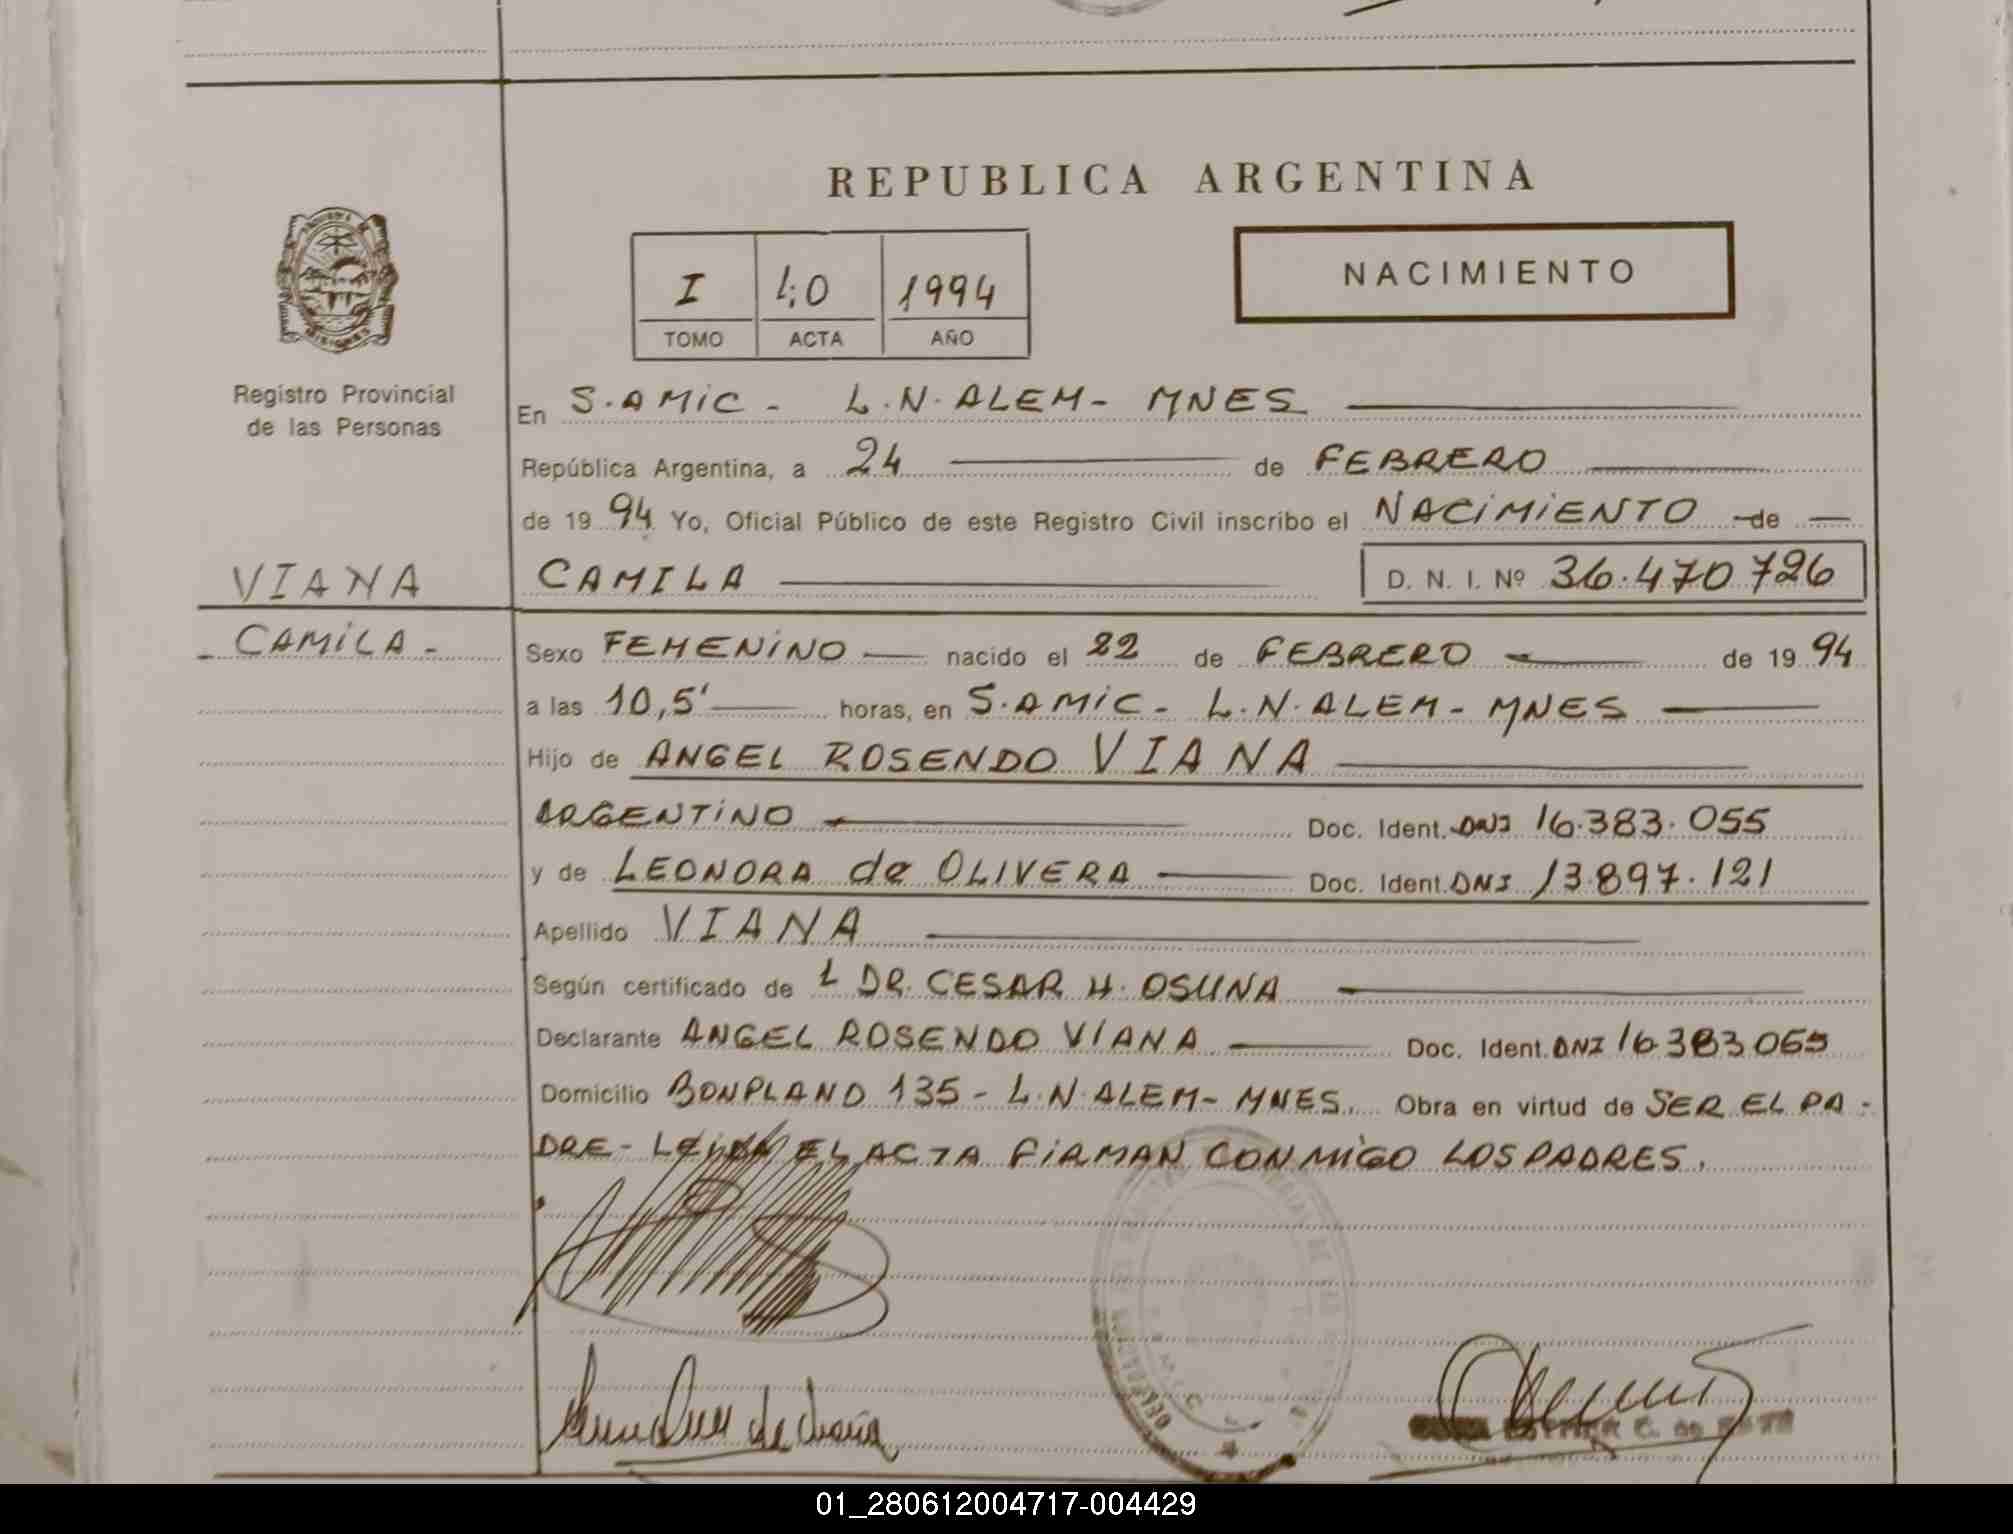 REPUBLICA ARGENTINA
I 40 1994
TOMO ACTA AÑO
NACIMIENTO
Registro Provincial
de las Personas
VIANA
- CAMILA -
En S.AMIC - L.N.ALEM - MNES
República Argentina, a 24 de FEBRERO
de 19 94 Yo, Oficial Público de este Registro Civil inscribo el NACIMIENTO de
CAMILA D. N. I. Nº 36.470.726
Sexo FEMENINO nacido el 22 de FEBRERO de 19 94
a las 10,5' horas, en S.AMIC - L.N.ALEM - MNES
Hijo de ANGEL ROSENDO VIANA
ARGENTINO Doc. Ident. DNI 16.383.055
y de LEONORA de OLIVERA Doc. Ident. DNI 13.897.121
Apellido VIANA
Según certificado de L DR. CESAR H. OSUNA
Declarante ANGEL ROSENDO VIANA Doc. Ident. DNI 16 383 065
Domicilio BONPLAND 135 - L.N.ALEM - MNES. Obra en virtud de SER EL PA-
DRE - EL ACTA FIRMAN CONMIGO LOS PADRES.
01_280612004717-004429